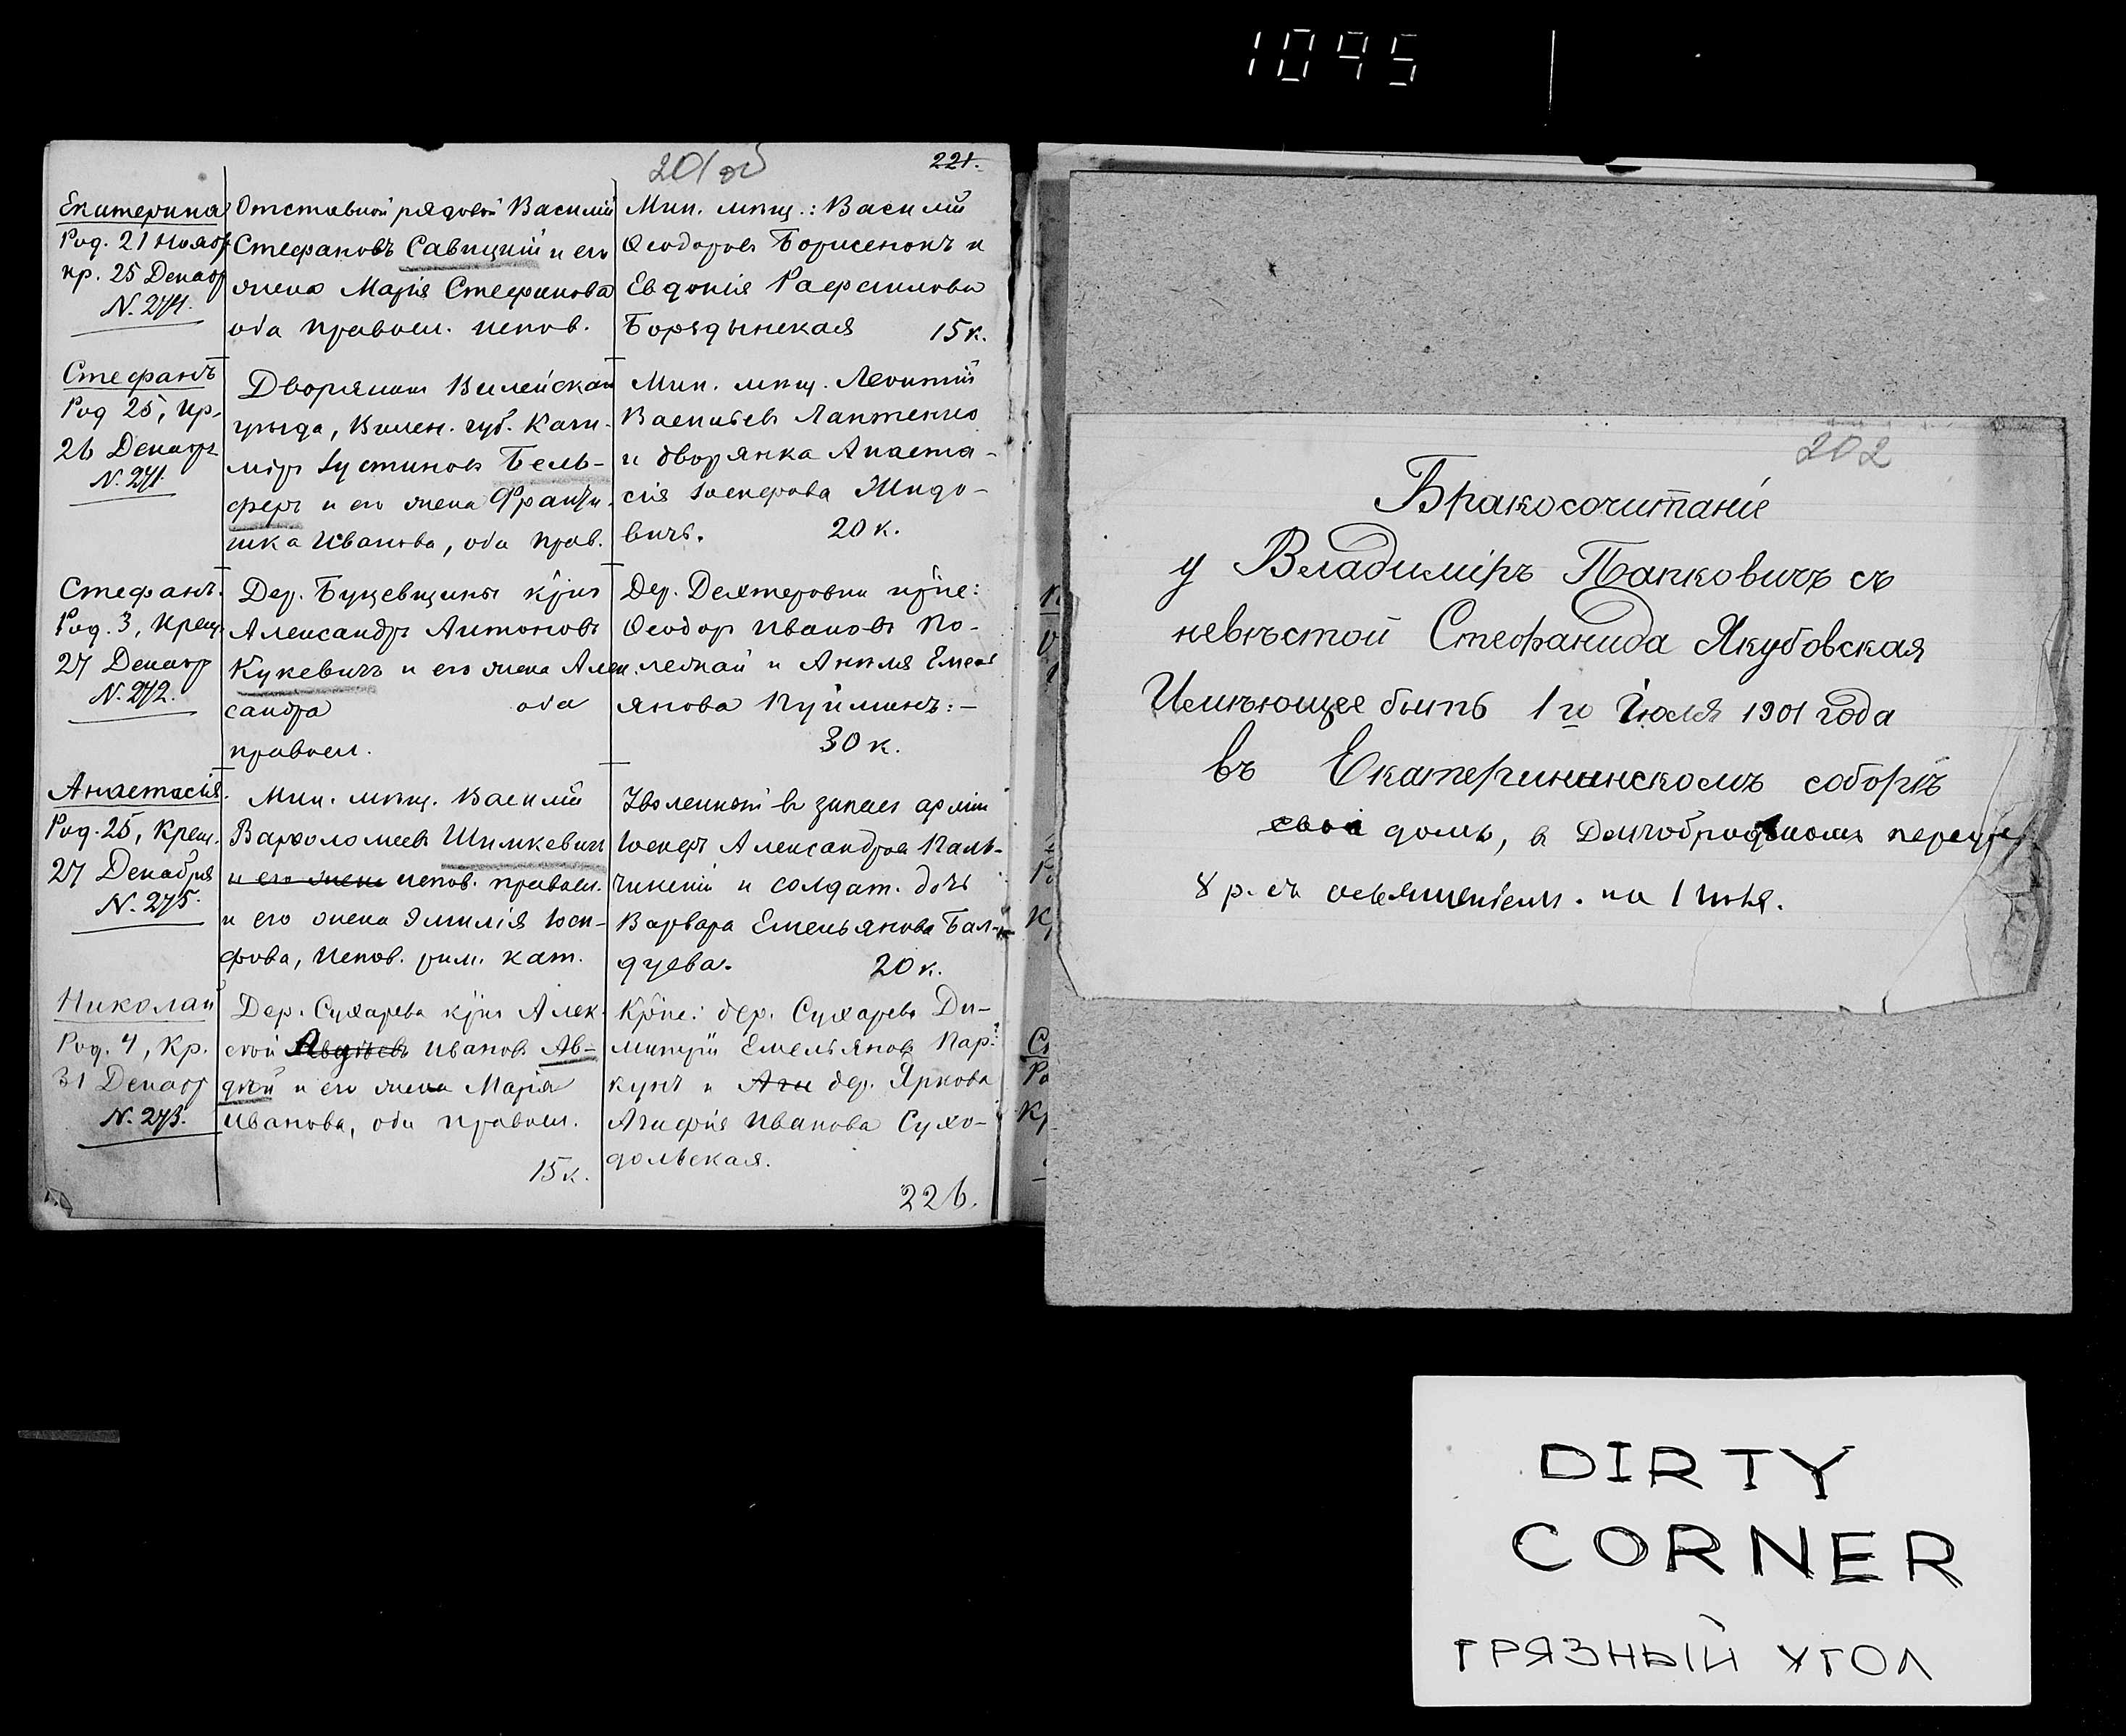 1095
201 об
221.
Екатерина
Род. 21 Ноябр
кр. 25 Декабр
N. 274.
Отставной рядовой Василий
Стефановъ Савицкий и его
жена Марія Стефанова
оба правосл. испов.
Мин. мѣщ.: Василій
Ѳеодоровъ Борисенокъ и
Евдокія Рафаилова
15 к.
Стефанъ
Род 25, кр.
26 Декабр
N. 271.
Дворянинъ Вилейскаго
уѣзда, Вилен. губ. Кази-
міръ Іустиновъ Бель-
феръ и его жена Франци-
шка Иванова, оба прав.
Мин. мѣщ. Леонтій
Васильевъ Лаптенко
и дворянка Анаста-
сія Іосифова Жидо-
вичъ. 20 к.
Стефанъ.
Род. 3, крещ.
27 Декабр
N. 272.
Дер. Буцевщины кр̃нъ
Александръ Антоновъ
Кукевичъ и его жена Алек-
сандра оба
правосл.
Ѳеодоръ Ивановъ По-
лесъкай и Емель-
янова :-
30 к.
Анастасія.
Род. 25, Крещ.
27 Декабря
N. 275.
Мин. мѣщ. Василій
Варѳоломеевъ Шимкевичъ
и его жена испов. правосл.
и его жена Эмилія Іоси-
фова, испов. рим. кат.
Уволенный въ запасъ арміи
Іосифъ Александровъ Каль-
чинскій и солдат. дочь
Варвара Емельянова Бал-
дуева. 20 к.
Николай
Род. 4, Кр.
31 Декабр
N. 273.
Дер. Сухарева кр̃нъ Алек-
сѣй Авдѣевъ Ивановъ Ав-
дѣй и его жена Марія
Иванова, оба правосл.
15 к.
Кр̃не: дер. Сухарева Ди-
митрій Емельяновъ Пар-
кунъ и Ага дер. Яркова
Агафія Иванова Сухо-
дольская.
226.
202
Бракосочитаніе
у Владиміръ Папковичъ съ
невѣстой Стефанида Якубовская
Имѣющее быть 1го Іюля 1901 года
въ Екатерининскомъ соборѣ
свой домъ, в Долгобродскомъ переул
8 р. съ освященіем. на 1 іюля.
DIRTY
CORNER
ГРЯЗНЫЙ УГОЛ